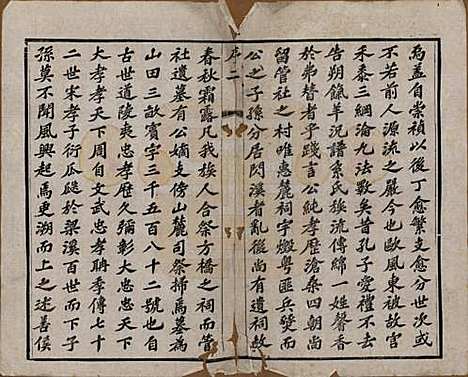 為蓋自崇禎以後丁愈繁支愈分世次或
不若前人源流之嚴今也歐風東被故宮
禾黍三綱淪九法斁矣昔孔子愛禮不去
告朔餼羊況譜系氏族流傳綿一姓馨香
於弗替者乎踐言公純孝歷滄桑四朝尚
留管社之村唯惠麓祠宇燬粵匪兵燹而
公之子孫分居閃溪者亂後尚有遺祠故
序 二
春秋霜露凡我族人合祭方橋之祠而管
社遺墓有公嫡支傍山麓司祭掃焉墓為
山田三畝賓字三千五百八十二號也
古世道陵夷忠孝歷久彌彰大忠忠天下
大孝孝天下周自文武忠孝聃季傳七十
二世宋孝子衍瓜瓞於梁溪百世而下子
孫莫不聞風興起焉更溯而上之述善侯